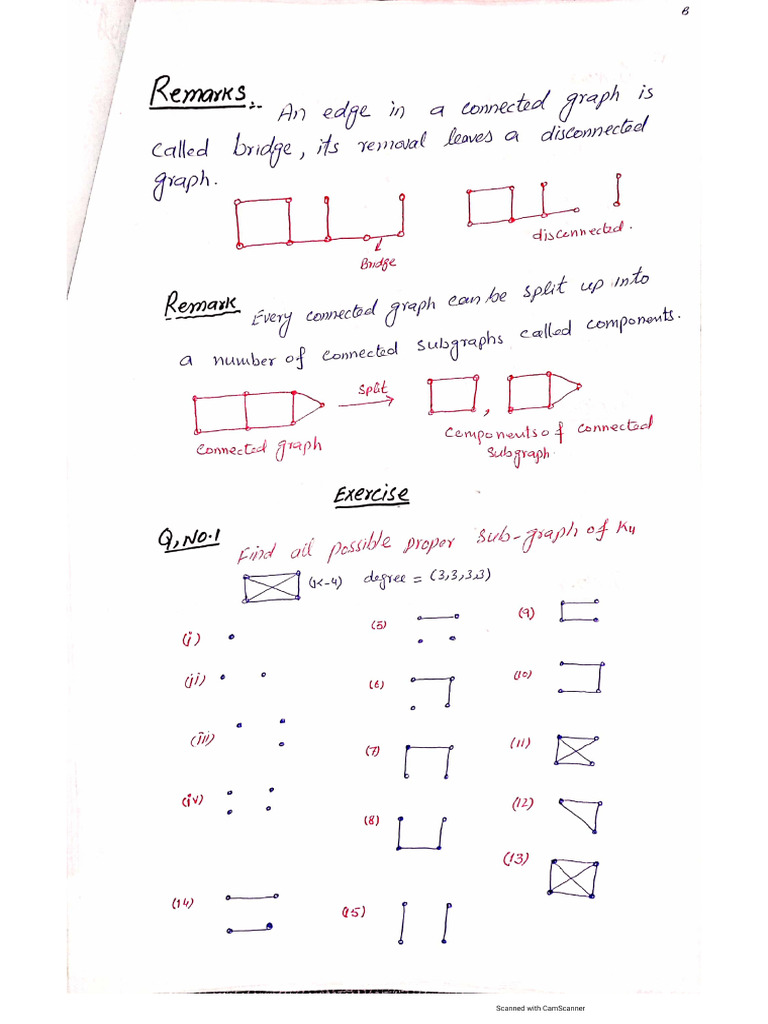 B
Remarks:-
An edge in a connected graph is
called bridge, its removal leaves a disconnected
graph.
Bridge
disconnected.
Remark
Every connected graph can be split up into
a number of connected subgraphs called components.
Split
,
Connected graph
Components of connected
subgraph.
Exercise
Q,No.1
Find all possible proper sub-graph of K4
(K-4) degree = (3,3,3,3)
(i)
(ii)
(iii)
(iv)
(5)
(6)
(7)
(8)
(9)
(10)
(11)
(12)
(13)
(14)
(15)
Scanned with CamScanner